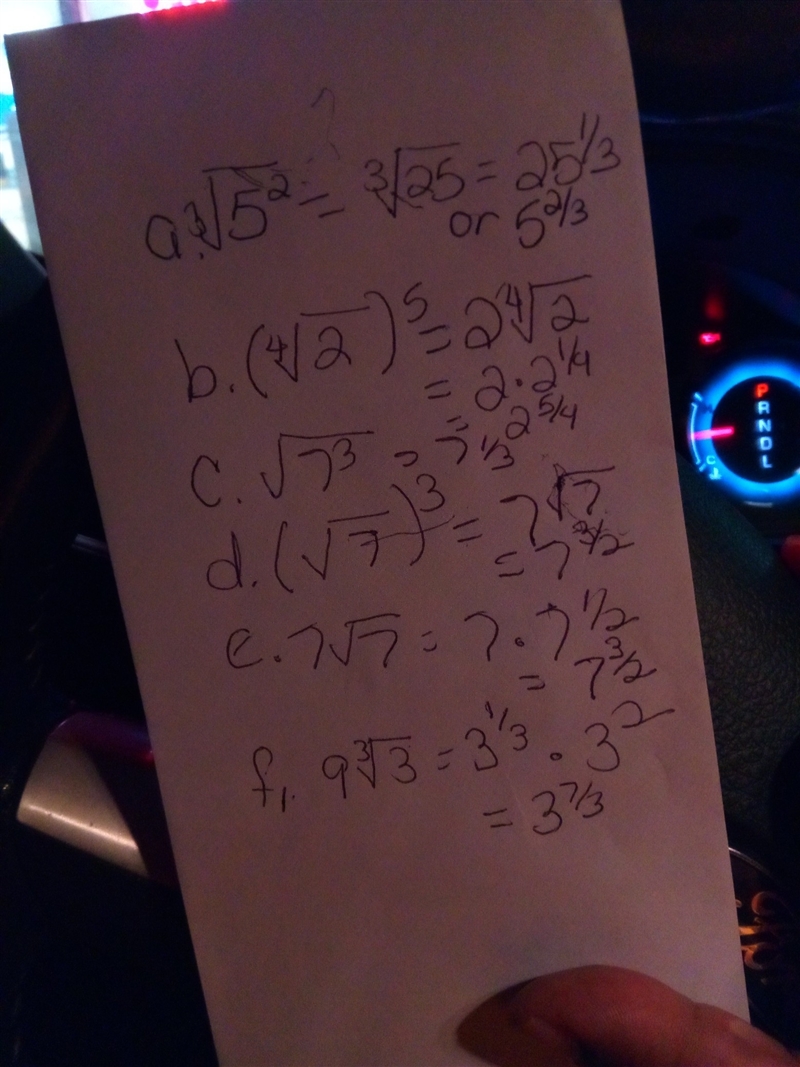 a. ∛5² = ∛25 = 25^1/3
or 5^2/3
b. (∜2)^5 = 2∜2
= 2·2^1/4
= 2^5/4
c. √7³ = 7^1/3
d. (√7)^3 = 7√7
= 7^3/2
e. 7√7 = 7·7^1/2
= 7^3/2
f. 9∛3 = 3^1/3 · 3^2
= 3^7/3
P
R
N
D
L
C